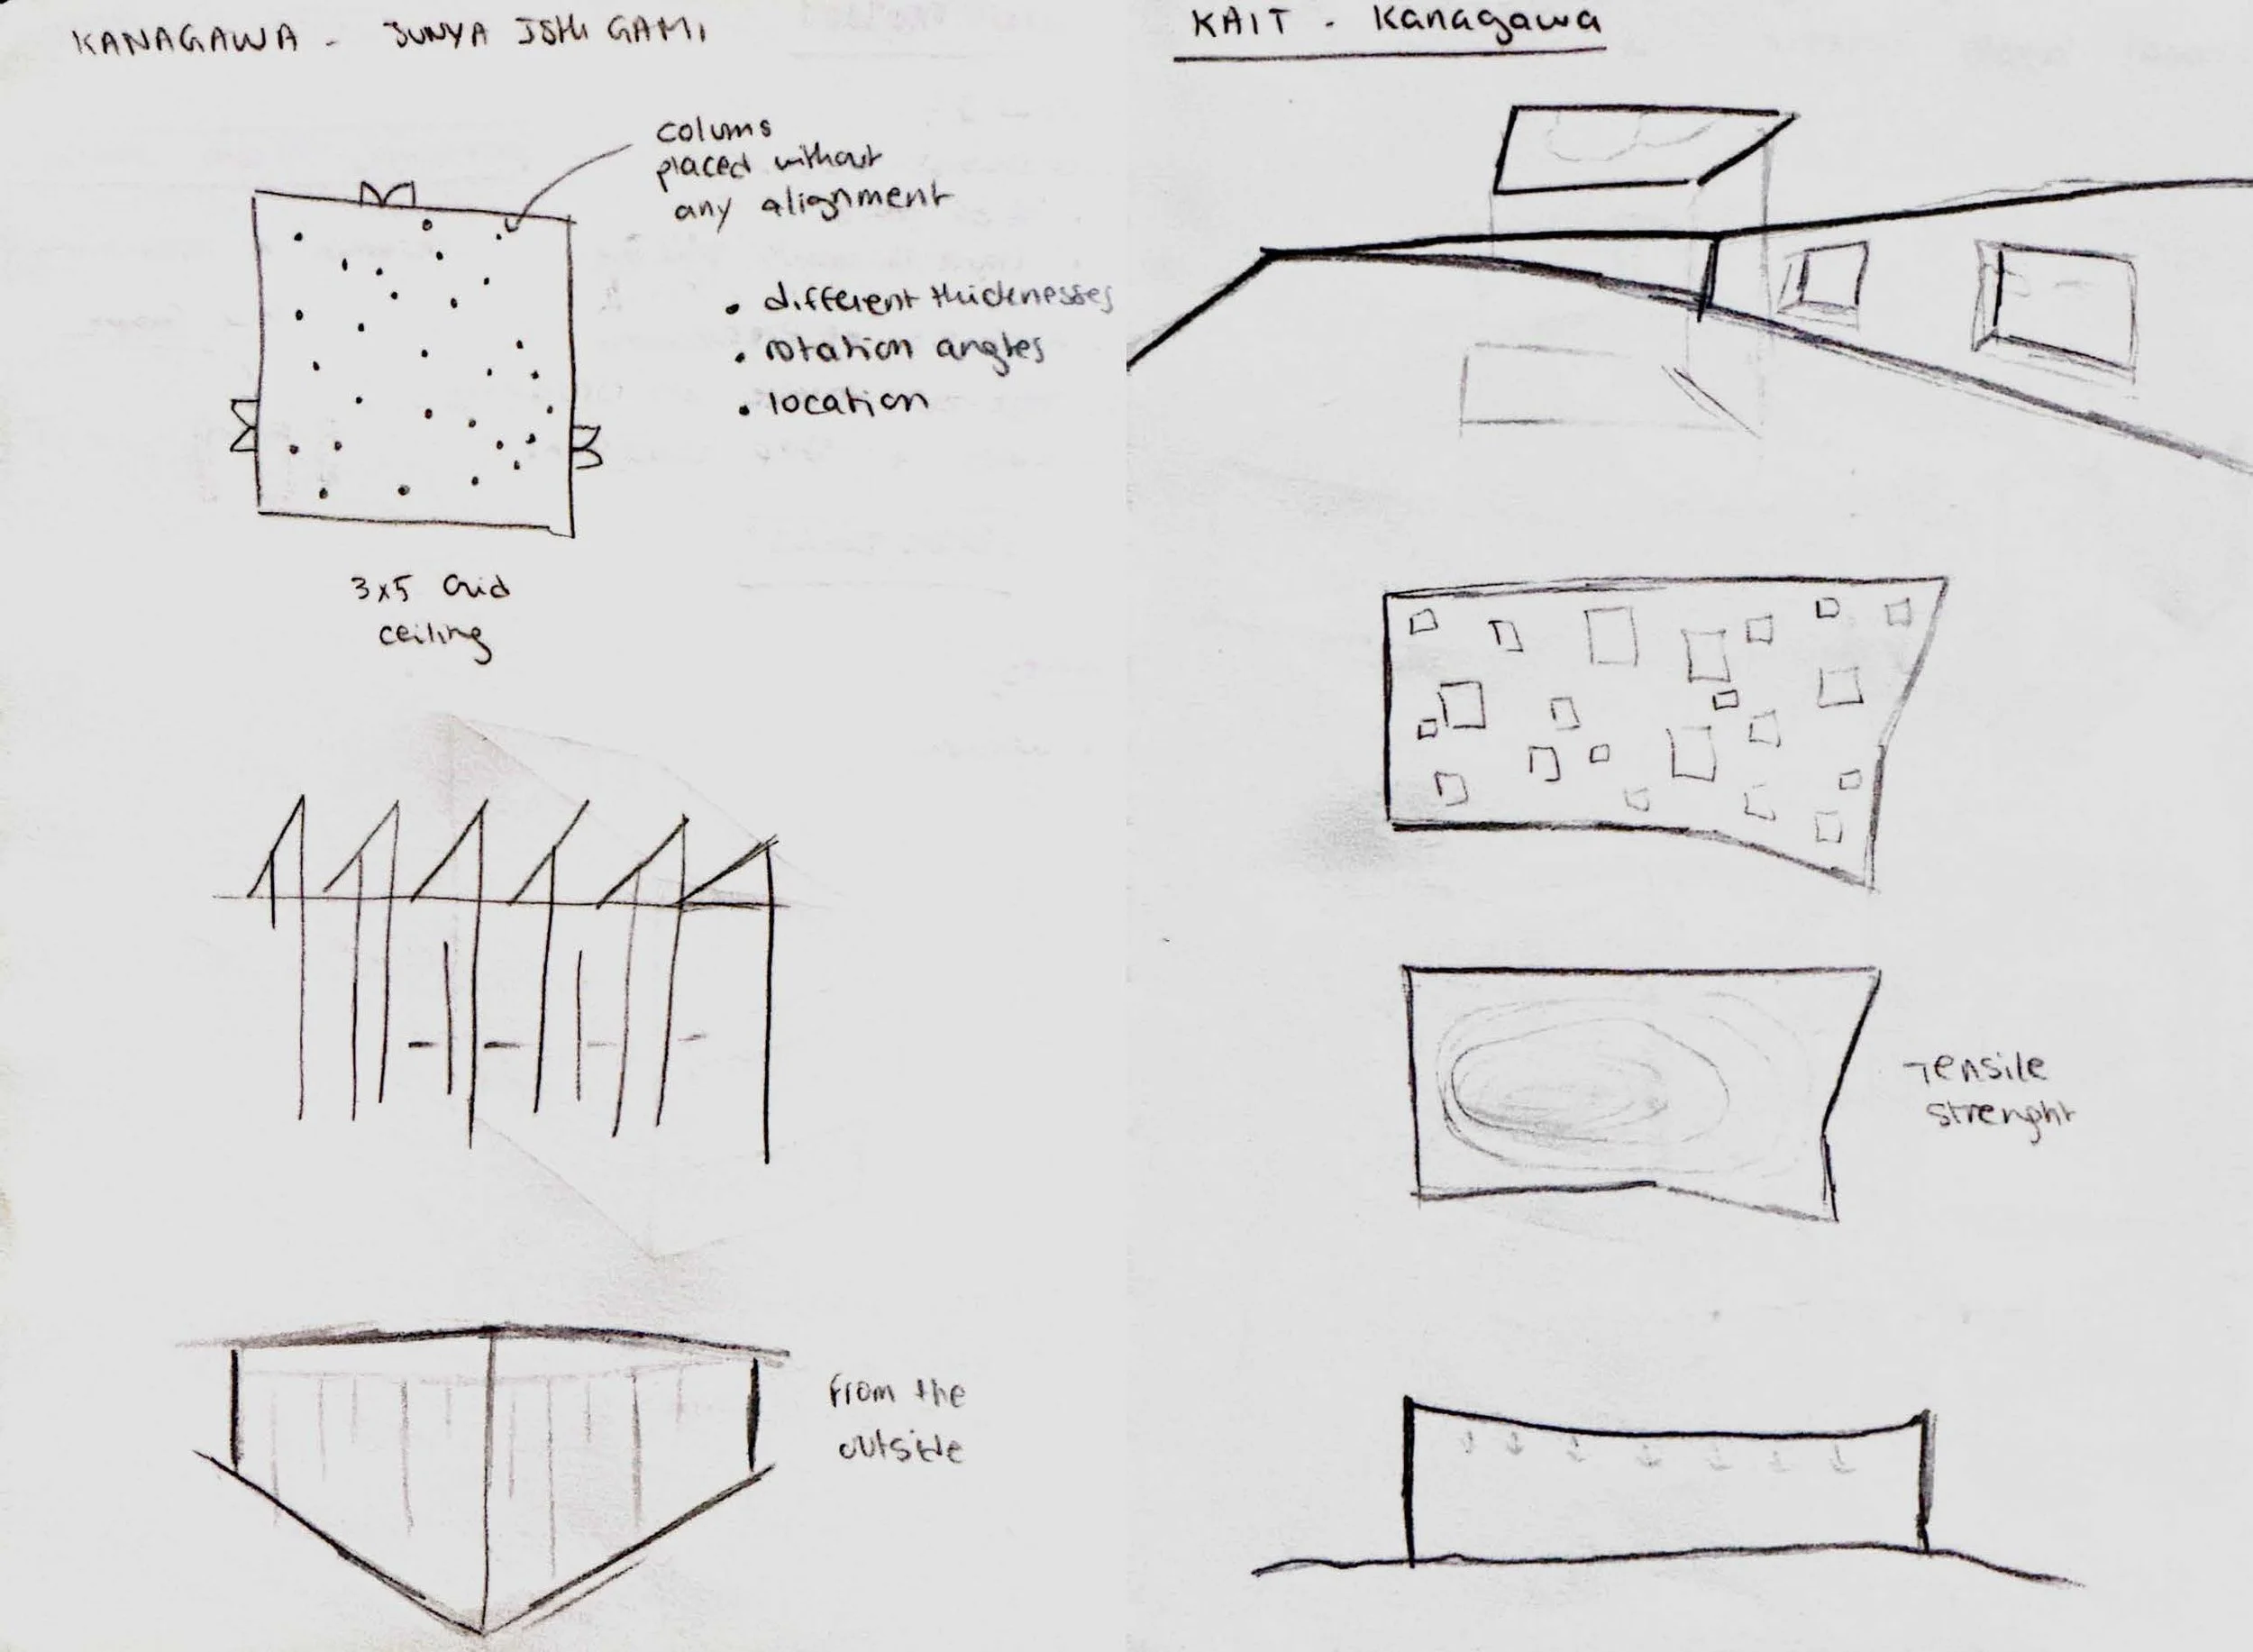 KANAGAWA - JUNYA ISHIGAMI
colums
placed without
any alignment
• different thicknesses
• rotation angles
• location
3x5 Grid
ceiling
from the
outside
KAIT - Kanagawa
Tensile
strenght